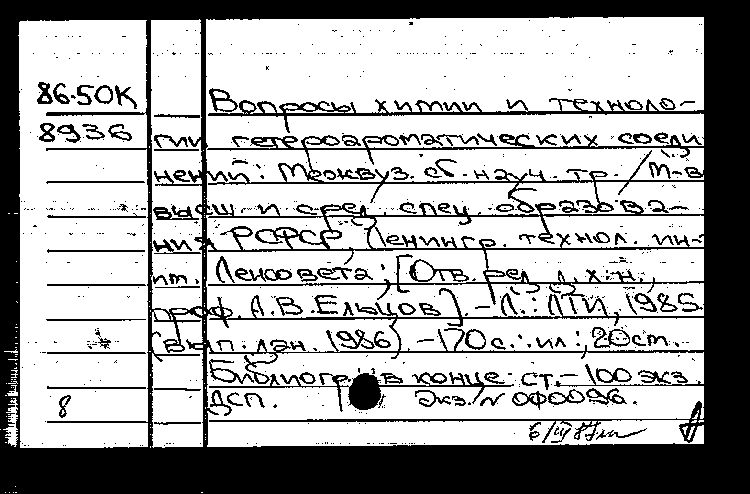 86-50К
8936
Вопросы химии и техноло-
гии гетероароматических соеди
нений: Межвуз. сб. науч. тр. / М-в
высш. и сред. спец. образова-
ния РСФСР, Ленингр. технол. ин-т
им. Ленсовета; [Отв. ред. д.х.н.,
проф. А.В. Ельцов]. - Л.: ЛТИ, 1985
(вып. дан. 1986). - 170 с.: ил.; 20 см.
Библиогр. в конце ст. - 100 экз.
ДСП. Экз. N 0Ф0096.
8